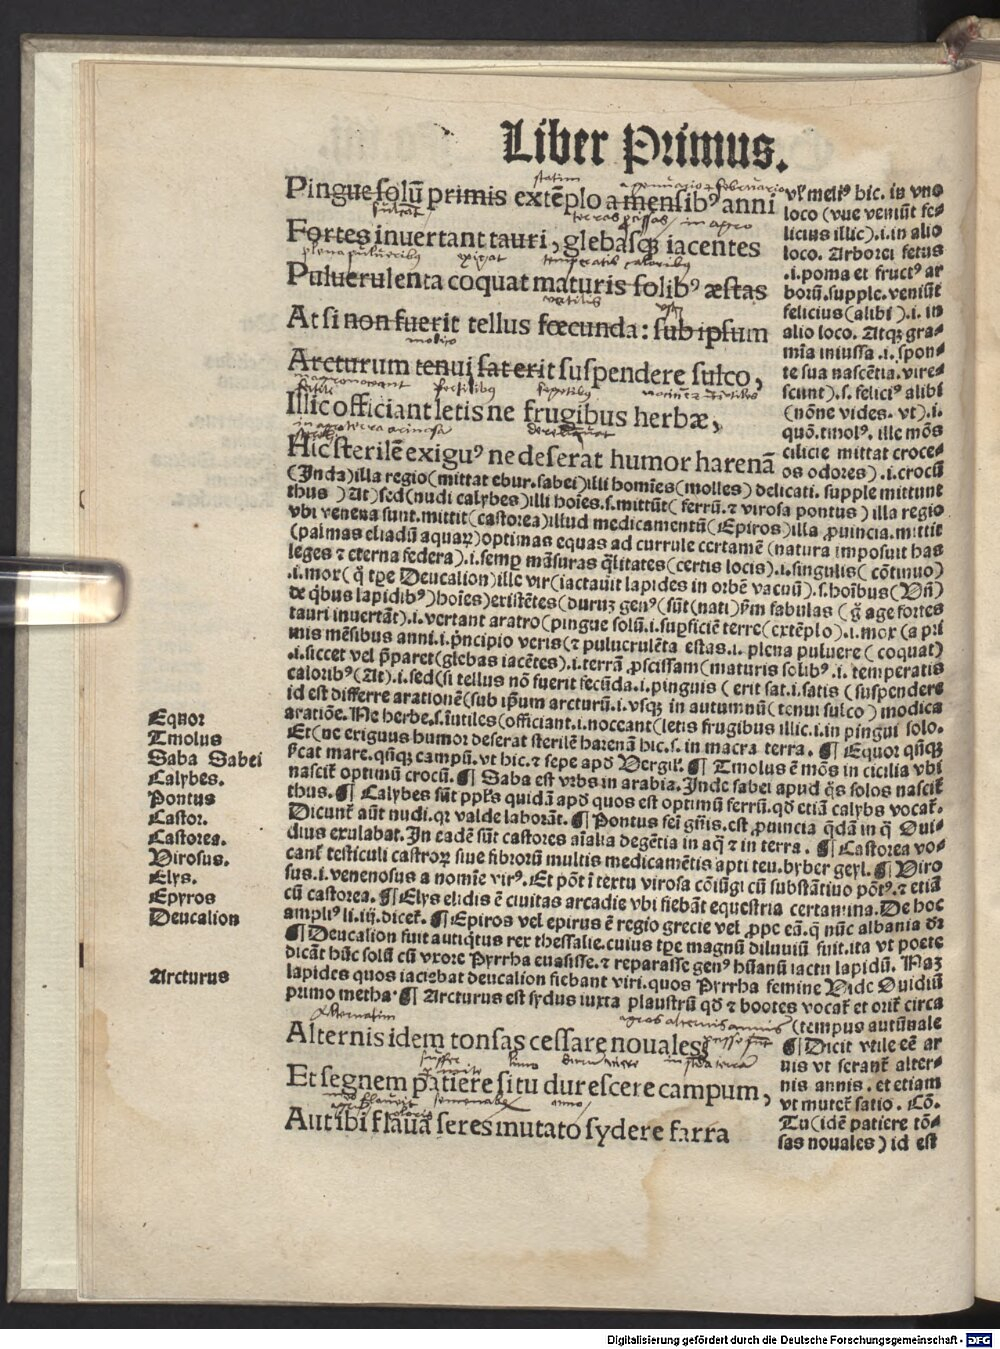 Liber Primus.
Pingue solū primis extēplo a mensibꝰ anni
Fortes inuertant tauri, glebasqꝫ iacentes
Puluerulenta coquat maturis solibꝰ æstas
At si non fuerit tellus fœcunda: sub ipsum
Arcturum tenui sat erit suspendere sulco,
Illic officiant letis ne frugibus herbæ,
Hic sterilē exiguꝰ ne deserat humor harenā
vl' meliꝰ hic. in vno
loco (vue veniūt fe⸗
licius illic).i.in alio
loco. Arborei fetus
.i.poma et fructꝰ ar
borū.supple.veniūt
felicius(alibi).i. in
alio loco. Atqꝫ gra⸗
mīa iniussa.i.spon⸗
te sua nascētia.vire⸗
scunt).s.feliciꝰ alibi
(nōne vides. vt).i.
quō.tmolꝰ. ille mōs
cilicie mittat croce⸗
os odores).i.crocū
(Inda)illa regio(mittat ebur.sabei)illi homīes(molles) delicati. supple mittunt
thus )At)sed(nudi calybes)illi hoīes.s.mittūt( ferrū.⁊ virosa pontus ) illa regio
vbi venena sunt.mittit(castorea)illud medicamentū(Epiros)illa ꝓuincia.mittit
(palmas eliadū aquaꝝ)optimas equas ad currule certamē (natura imposuit has
leges ⁊ eterna federa).i.semp̱ māsuras q̄litates(certis locis).i.singulis( cōtinuo)
.i.mor(q̄ tp̄e Deucalion)ille vir(iactauit lapides in orbē vacuū).s.hoibus(Vn̄)
de q̄bus lapidibꝰ)hoīes)existētes(duruꝫ genꝰ(sūt(nati)p̄m fabulas (q̄ age fortes
tauri inuertāt).i.vertant aratro(pingue solū.i.sup̱ficiē terre(extēplo).i.mox (a pri
mis mēsibus anni.i.p̄ncipio veris(⁊ puluerulēta estas.i. plena puluere ( coquat)
.i.siccet vel p̄paret(glebas iacētes).i.terrā ꝓscissam(maturis solibꝰ.i. temperatis
caloribꝰ(At).i.sed(si tellus nō fuerit fecūda.i.pinguis ( erit sat.i.satis (suspendere
id est differre arationē(sub ip̄um arcturū.i.vsqꝫ in autumnū( tenui sulco ) modica
aratiōe. Ne herbe.s.iutiles(officiant.i.noceant(letis frugibus illic.i.in pingui solo.
Et(ne exiguus humor deserat sterilē harenā hic.s. in macra terra. ¶ Equor qn̄qꝫ
p̄cat mare.qn̄qꝫ campū.vt hic.⁊ sepe apd̄ Vergil'. ¶ Tmolus ē mōs in cicilia vbi
nascit̄ optimū crocū. ¶ Saba est vrbs in arabia. Inde sabei apud q̄s solos nascit̄
thus. ¶ Calybes sūt ppl̄s quidā apd̄ quos est optimū ferrū.qd̄ etiā calybs vocat̄.
Dicunt̄ aūt nudi.qr valde laborāt. ¶ Pontus fei gn̄is.est ꝓuincia q̄dā in q̄ Oui⸗
dius exulabat. In eadē sūt castores aīalia degētia in aq̄ ⁊ in terra. ¶ Castorea vo⸗
cant̄ testiculi castroꝝ siue fibrorū multis medicamētis apti teu.byber geyl. ¶ Viro
sus.i.venenosus a nomīe virꝰ. Et pōt ī textu virosa cōiūgi cū substātiuo pōtꝰ.⁊ etiā
cū castorea. ¶ Elys elidis ē ciuitas arcadie vbi fiebāt equestria certamina. De hoc
ampliꝰ li.iij.dicet̄. ¶ Epiros vel epirus ē regio grecie vel ꝓpe eā.q̄ nūc albania dr̄
¶ Deucalion fuit antiq̄tus rex thessalie.cuius tp̄e magnū diluuiū fuit.ita vt poete
dicāt hūc solū cū vxore Pyrrha euasisse.⁊ reparasse genꝰ hūanū iactu lapidū. Naꝫ
lapides quos iaciebat deucalion fiebant viri.quos Pyrrha femine Vide Ouidiū
primo metha. ¶ Arcturus est sydus iuxta plaustrū qd̄ ⁊ bootes vocat̄ et orit̄ circa
(tempus autūnale
Equor
Tmolus
Saba Sabei
Calybes.
Pontus
Castor.
Castorea.
Virosus.
Elys.
Epyros
Deucalion
Arcturus
Alternis idem tonsas cessare nouales
Et segnem patiere situ durescere campum,
Aut ibi flaua seres mutato sydere farra
¶ Dicit vtile eē ar
uis vt serant̄ alter⸗
nis annis. et etiam
vt mutet̄ satio. Cō.
Tu(idē patiere tō⸗
sas nouales) id est
Digitalisierung gefördert durch die Deutsche Forschungsgemeinschaft - DFG